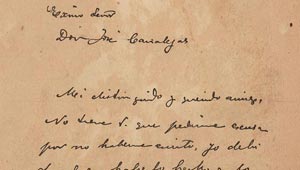 Exmo Señor
Don José Canalejas
Mi distinguido y querido amigo,
No tiene V. que pedirme excusa
por no haberme escrito, yo debí